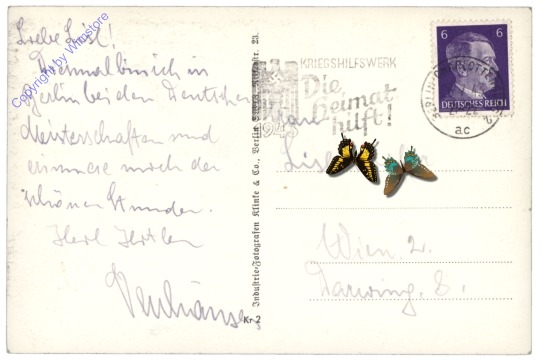 Liebe Liesl!
Diesmal bin ich in
Berlin bei den Deutschen
Meisterschaften und
erinnere mich der
schönen Stunden.
Herzl.
Copyright by Wimstore
Industrie-Fotografen Klinke & Co., Berlin
23.
Kr 2
KRIEGSHILFSWERK
Die
Heimat
hilft!
1943
6 6
DEUTSCHES REICH
BERLIN-CHARLOTTEN
ac
Wien 2.
8.